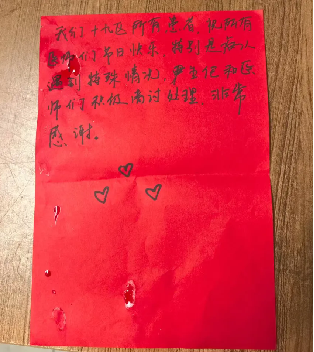 我们十九区所有患者，祝所有
们节日快乐，特别是
遇到特殊情况，尹书记和医
师们积极商讨处理，非常
感谢。